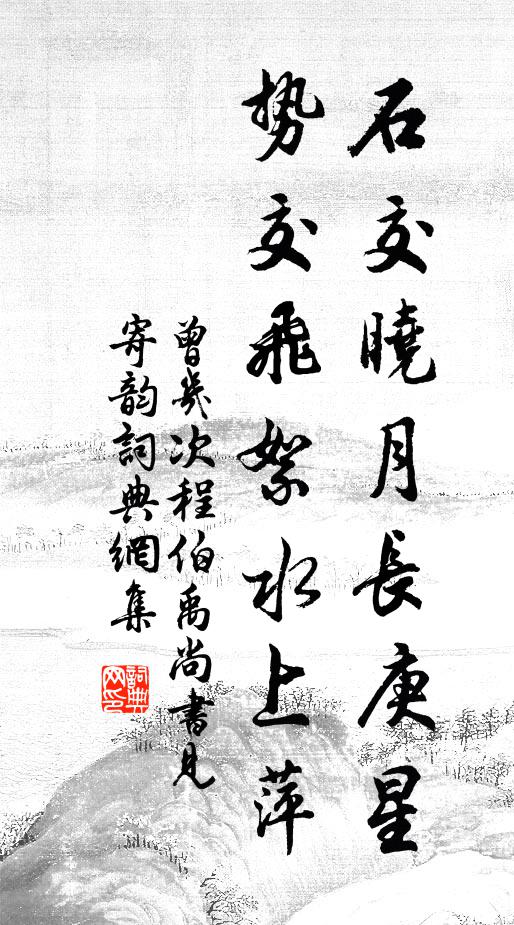 石交曉月長庚星
勢交飛絮水上萍
曾幾次程伯禹尚書見
寄韵詞典網集
詞典網印